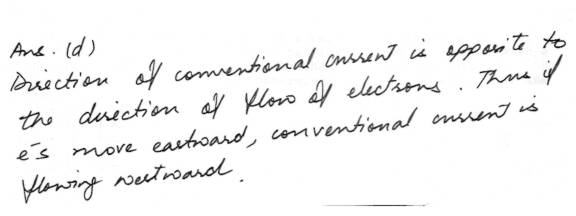 Ans. (d)
Direction of conventional current is opposite to
the direction of flow of electrons. Thus if
e⁻s move eastward, conventional current is
flowing westward.